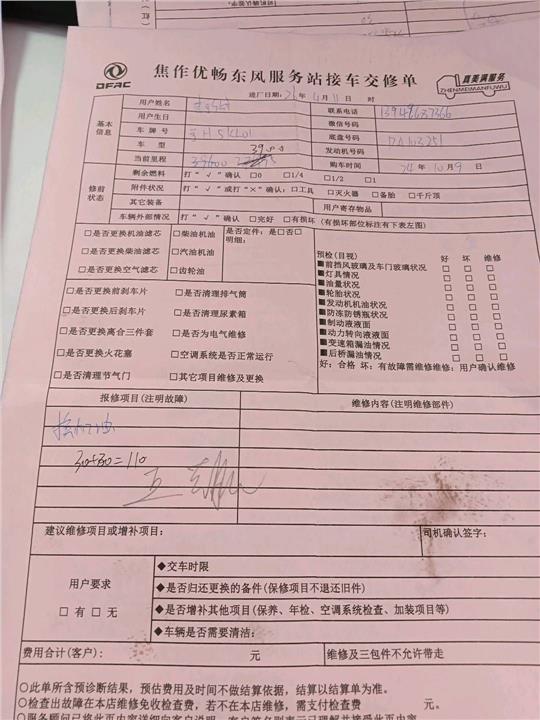 DFAC
焦作优畅东风服务站接车交修单
真美满服务
ZHENMEIMANFUWU
进厂日期: 年 月11日 时
基本信息
用户姓名
联系电话
用户生日
微信号码
车 牌 号
底盘号码 DA103251
车 型
发动机号码
3900
当前里程
购车时间 24 年 10 月 9 日
修前状态
剩余燃料 打“√”确认 □0 □1/4 □1/2 □1
附件状况 打“√”或打“×”确认:□工具 □灭火器 □备胎 □千斤顶
其它装备
用户寄存物品
车辆外部情况 打“√”确认 □完好 □有损坏(有损坏部位标注有下表左图)
□是否更换机油滤芯 □柴油机油 是否定件:是□否□
□是否更换柴油滤芯 □汽油机油 明细:
□是否更换空气滤芯 □齿轮油
□是否更换前刹车片 □是否清理排气筒
□是否更换后刹车片 □是否清理尿素箱
□是否更换离合三件套 □是否为电气维修
□是否更换火花塞 □空调系统是否正常运行
□是否清理节气门 □其它项目维修及更换
预检(目视) 好 坏 维修
■前挡风玻璃及车门玻璃状况 □ □ □
■灯具情况 □ □ □
■油量状况 □ □ □
■轮胎状况 □ □ □
■发动机机油状况 □ □ □
■防冻防锈瓶状况 □ □ □
■制动液液面 □ □ □
■动力转向液液面 □ □ □
■变速箱漏油情况 □ □ □
■后桥漏油情况 □ □ □
好:合格 坏:有故障需维修维修:用户确认维修
报修项目(注明故障)
维修内容(注明维修部件)
=110
建议维修项目或增补项目:
司机确认签字:
用户要求
□有□无
◆交车时限
◆是否归还更换的备件(保修项目不退还旧件)
◆是否增补其他项目(保养、年检、空调系统检查、加装项目等)
◆车辆是否需要清洁:
费用合计(客户): 元
维修及三包件不允许带走
○此单所含预诊断结果,预估费用及时间不做结算依据,结算以结算单为准。
○检查出故障在本店维修免收检查费,若不在本店维修,需支付检查费 元。
○服务顾问已将此页内容详细向客户说明,客户签名则表示已理解并接受此页内容。